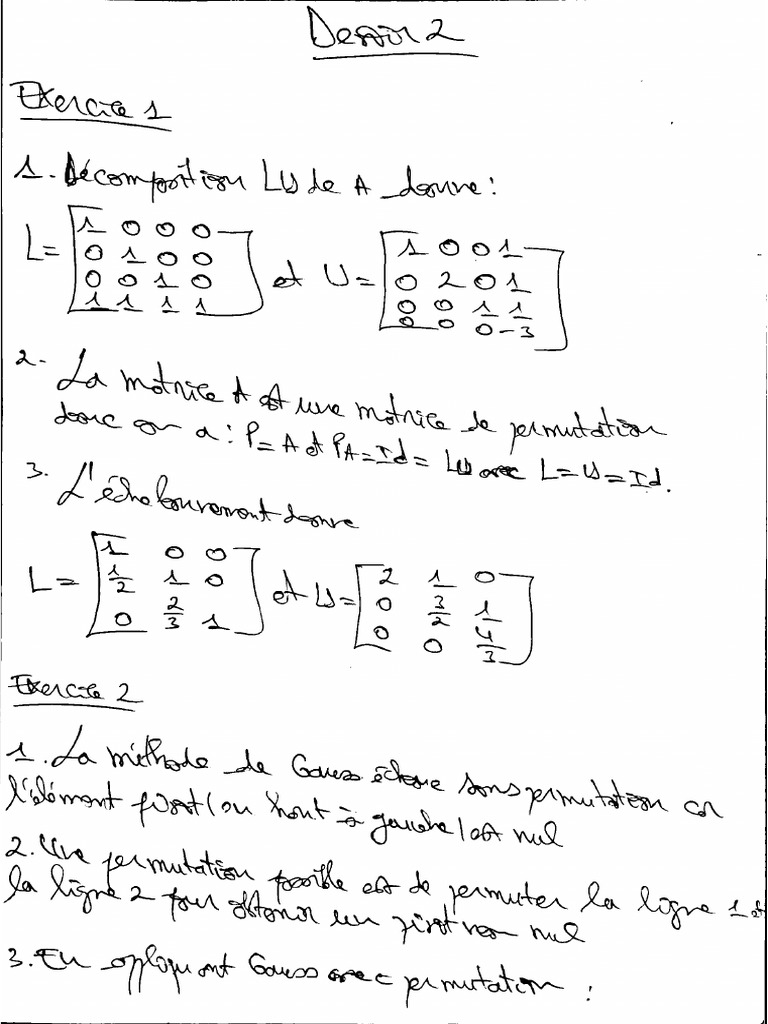 Devoir 2
Exercice 1
1. Décomposition LU de A donne :
L = [1 0 0 0; 0 1 0 0; 0 0 1 0; 1 1 1 1] et U = [1 0 0 1; 0 2 0 1; 0 0 1 1; 0 0 0 -3]
2- La matrice A est une matrice de permutation
donc on a : P = A et PA = Id = LU avec L = U = Id.
3. L'échelonnement donne
L = [1 0 0; 1/2 1 0; 0 2/3 1] et U = [2 1 0; 0 3/2 1; 0 0 4/3]
Exercice 2
1. La méthode de Gauss échoue sans permutation car
l'élément pivot (en haut à gauche) est nul
2. Une permutation possible est de permuter la ligne 1 et
la ligne 2 pour obtenir un pivot non nul
3. En appliquant Gauss avec permutation :